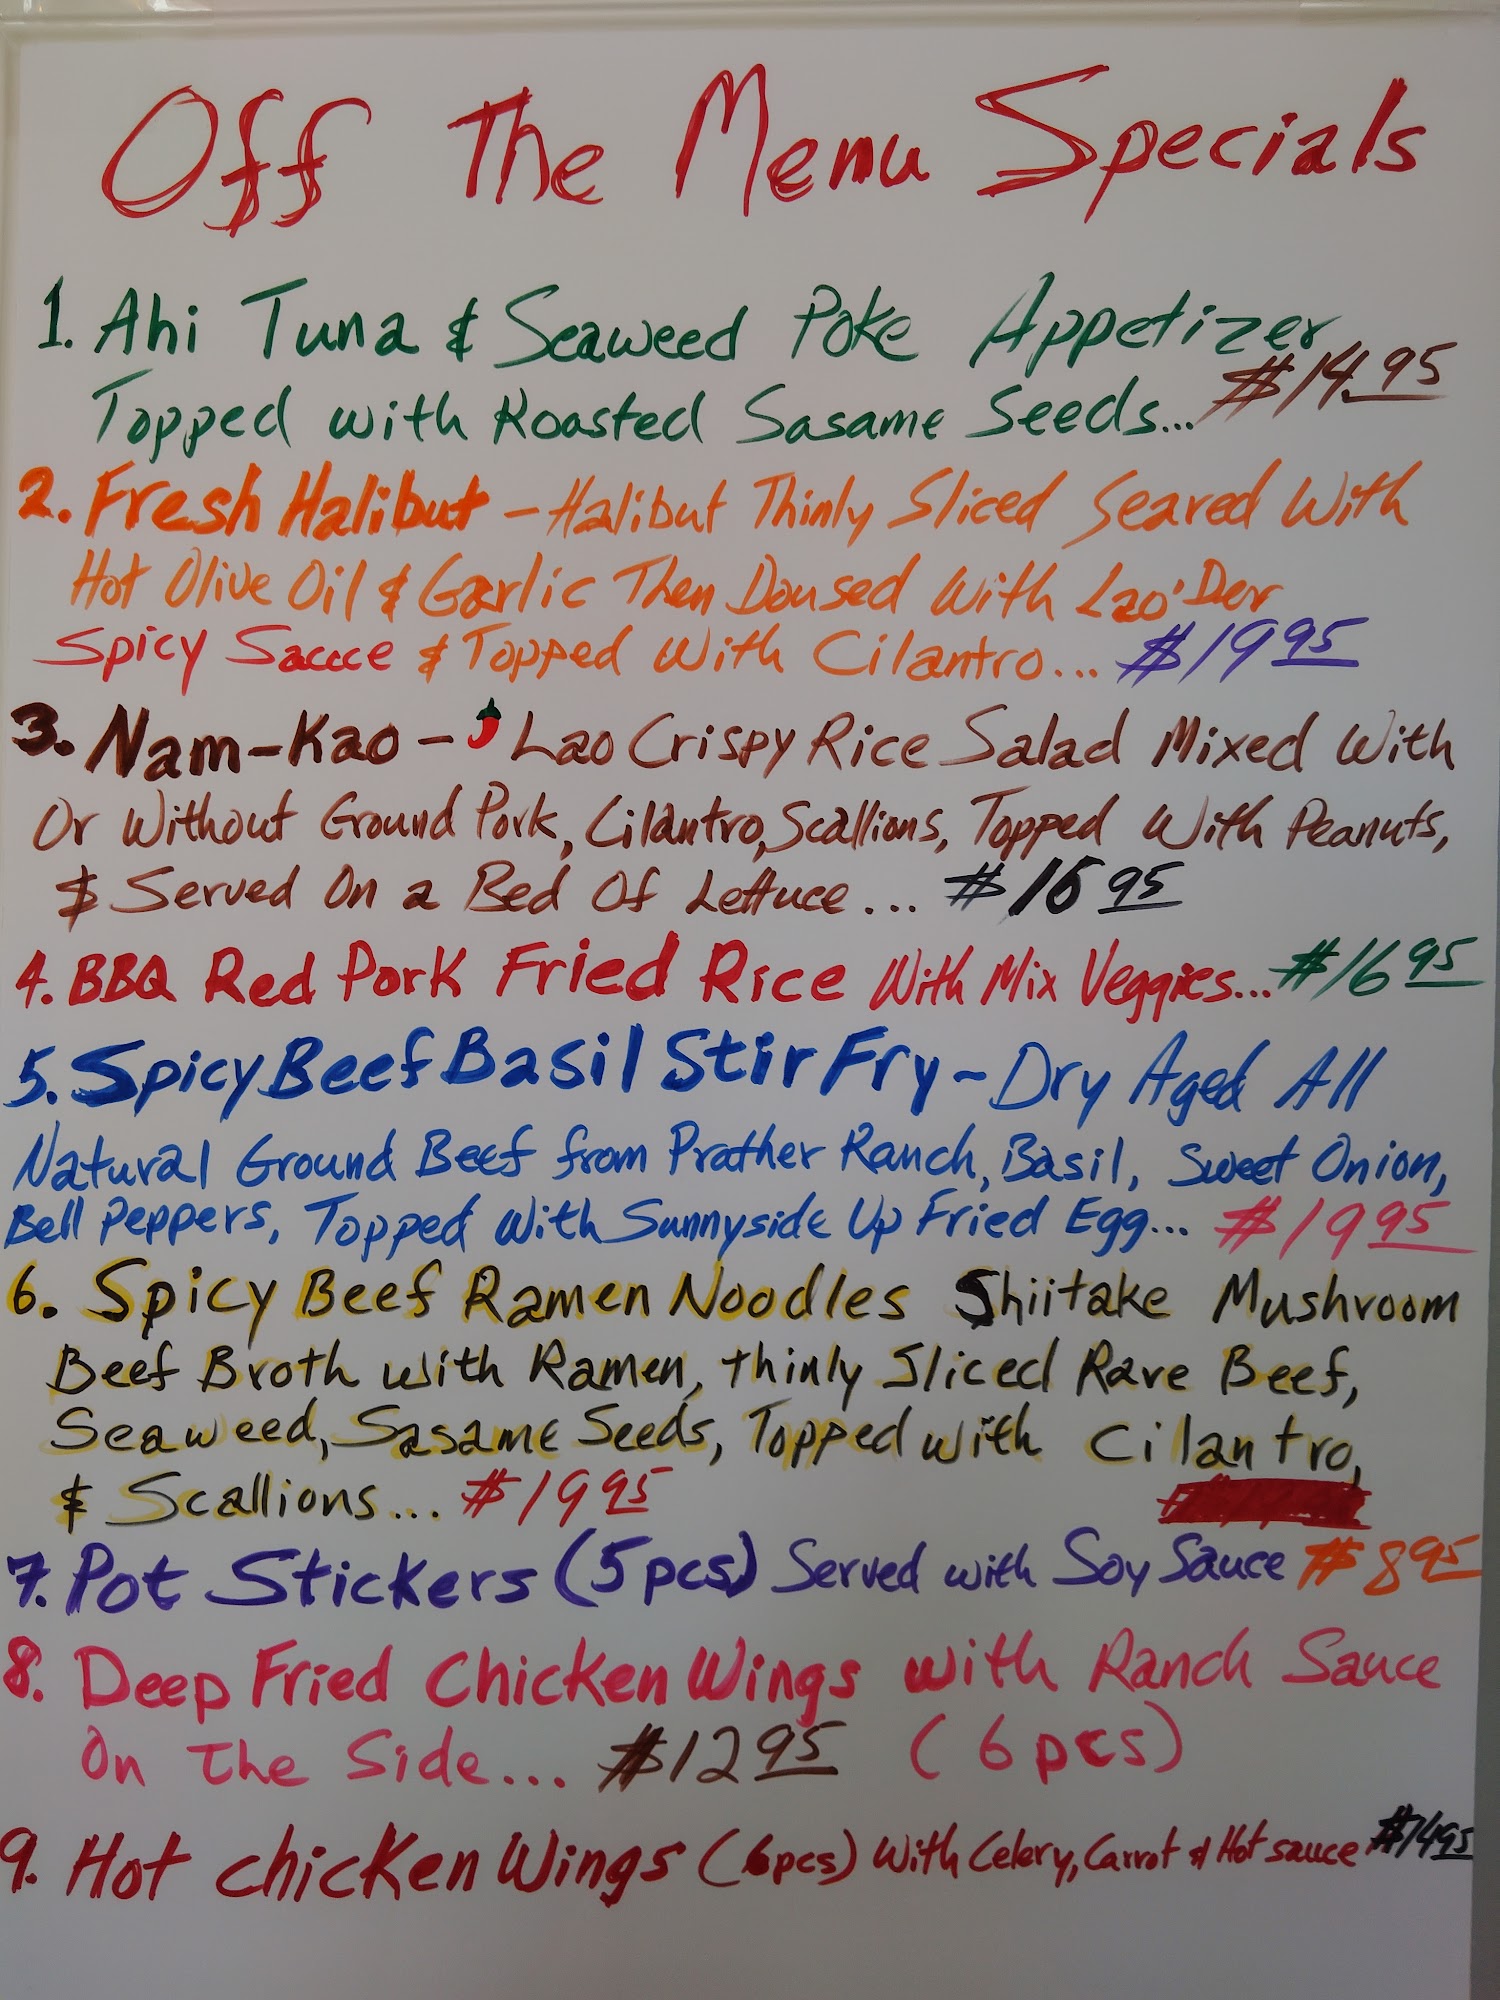 Off The Menu Specials
1. Ahi Tuna & Seaweed Poke Appetizer
Topped with Roasted Sasame Seeds... $14.95
2. Fresh Halibut - Halibut Thinly Sliced Seared With
Hot Olive Oil & Garlic Then Doused With Lao'Der
Spicy Saucce & Topped With Cilantro... $19 95
3. Nam-Kao - Lao Crispy Rice Salad Mixed With
Or Without Ground Pork, Cilantro, Scallions, Topped With Peanuts,
& Served On a Bed Of Lettuce... $ 95
4. BBQ Red Pork Fried Rice With Mix Veggies... $16 95
5. Spicy Beef Basil Stir Fry ~ Dry Aged All
Natural Ground Beef from Prather Ranch, Basil, Sweet Onion,
Bell Peppers, Topped With Sunnyside Up Fried Egg... $19 95
6. Spicy Beef Ramen Noodles Shiitake Mushroom
Beef Broth with Ramen, thinly Sliced Rare Beef,
Seaweed, Sasame Seeds, Topped with Cilantro,
& Scallions... $19 95
7. Pot Stickers (5pcs) Served with Soy Sauce $8 95
8. Deep Fried Chicken Wings with Ranch Sauce
On The Side... $12 95 (6 pcs)
9. Hot chicken Wings (6pcs) With Celery, Carrot & Hot sauce $14 95